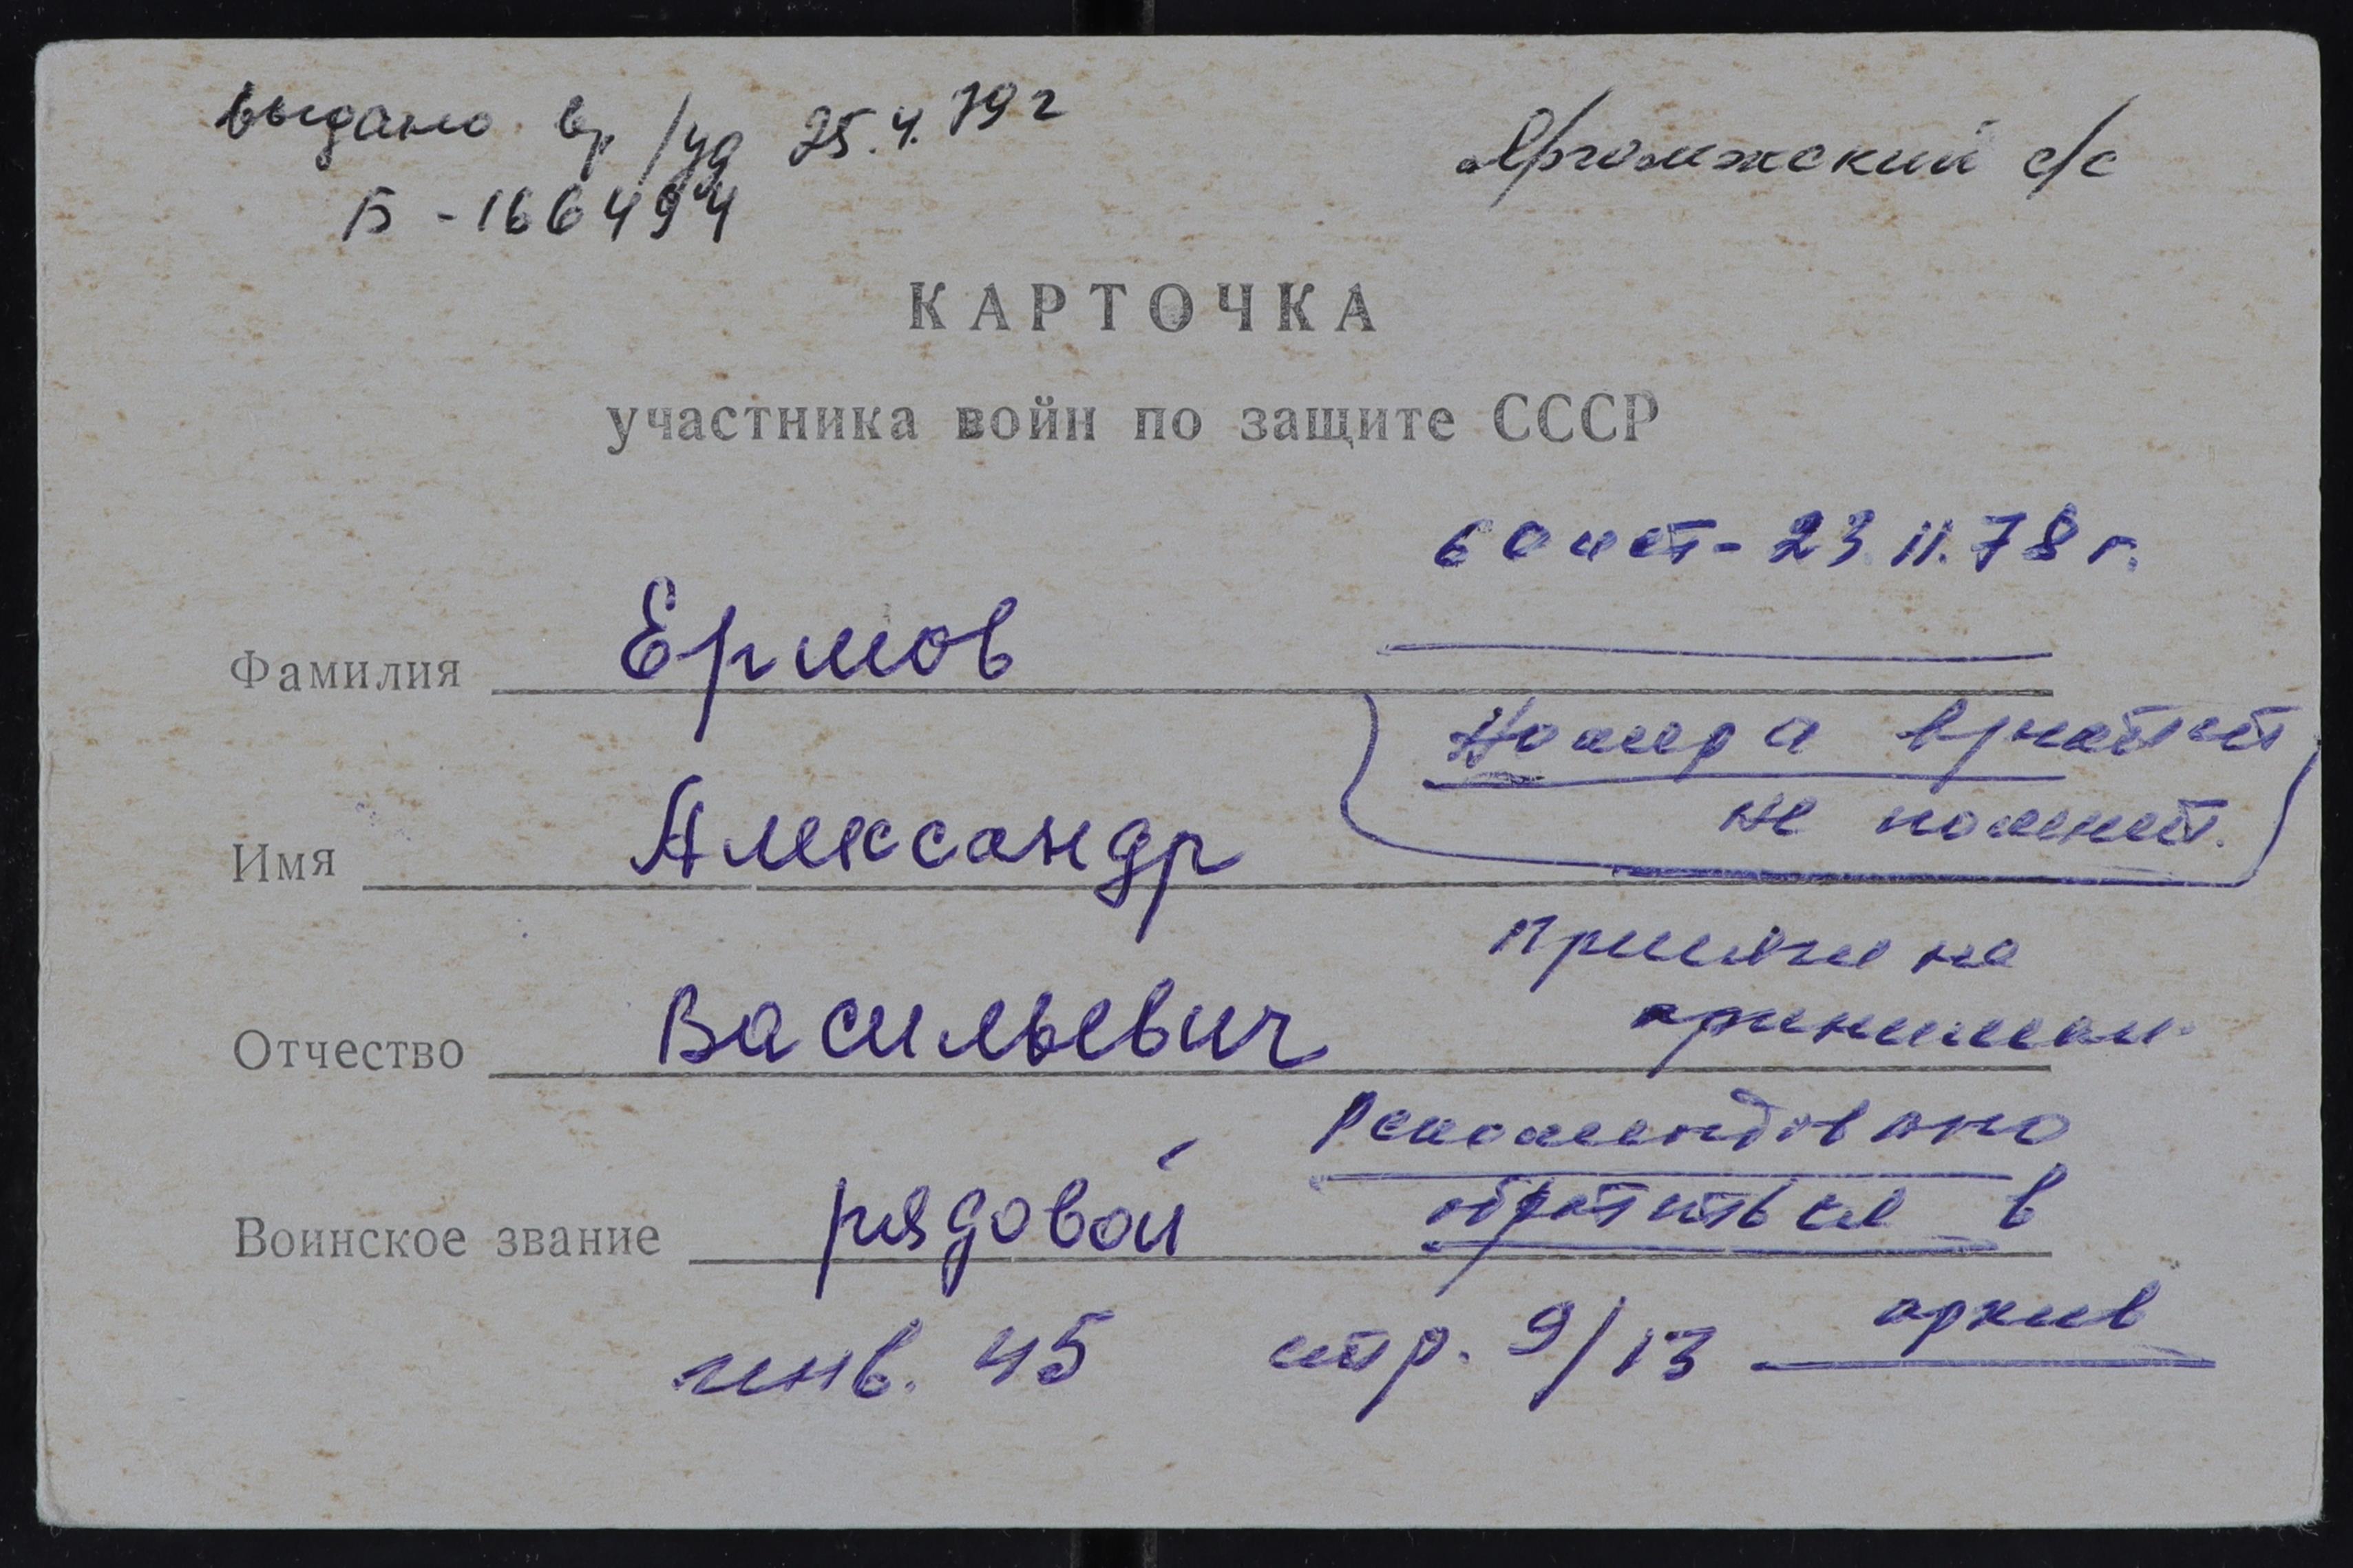 выдано вр/уд 25.4.79г
Б-166494
Яргомжский с/с
КАРТОЧКА
участника войн по защите СССР
60 лет - 23.11.78 г.
Фамилия Ермов
Номера
не помнит.
Имя Александр
Присягу не
принимал.
Отчество Васильевич
Рекомендовано
обратиться в
архив
Воинское звание рядовой
инв. 45 стр. 9/13